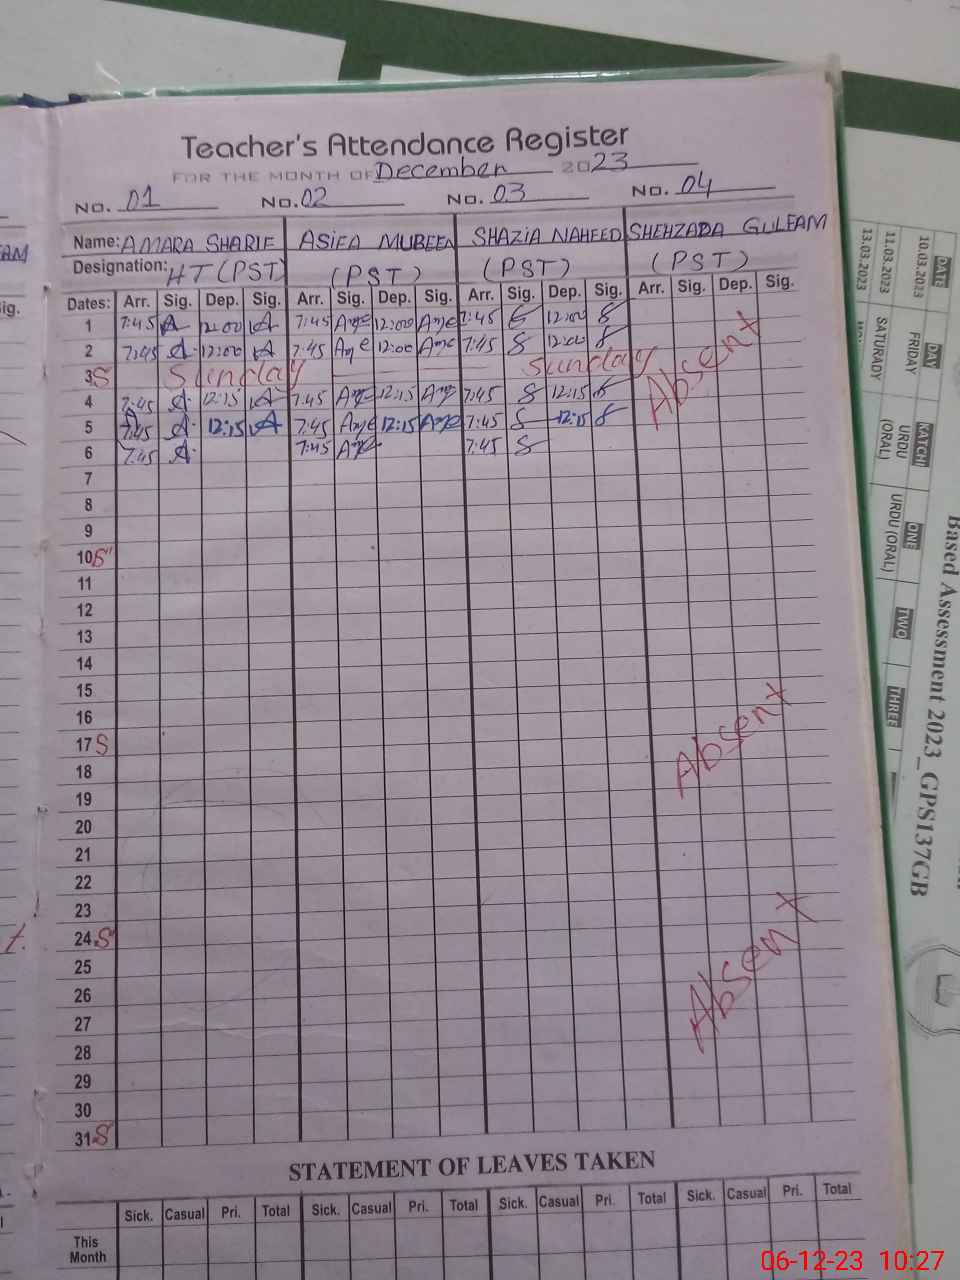 Teacher's Attendance Register
FOR THE MONTH OF December 2023
No. 01 No. 02 No. 03 No. 04
Name: AMARA SHARIF ASIFA MUBEEN SHAZIA NAHEED SHEHZADA GULFAM
Designation: HT (PST) (PST) (PST) (PST)
Dates: Arr. Sig. Dep. Sig. Arr. Sig. Dep. Sig. Arr. Sig. Dep. Sig. Arr. Sig. Dep. Sig.
1 7:45 A 12:00 A 7:45 12:00 7:45 S 12:00 S
2 7:45 A 12:00 A 7:45 12:00 7:45 S 12:00 S
3 S Sunday Sunday Absent
4 7:45 A 12:15 A 7:45 12:15 7:45 S 12:15 S
5 7:45 A 12:15 A 7:45 12:15 7:45 S 12:15 S
6 7:45 A 7:45 7:45 S
7
8
9
10 S
11
12
13
14
15
16
17 S Absent
18
19
20
21
22
23
24 S
25
26
27 Absent
28
29
30
31 S
STATEMENT OF LEAVES TAKEN
Sick. Casual Pri. Total Sick. Casual Pri. Total Sick. Casual Pri. Total Sick. Casual Pri. Total
This
Month
AM
ig.
t.
DATE DAY KATCHI ONE TWO THREE
10.03.2023 FRIDAY URDU (ORAL)
11.03.2023 SATURADY URDU (ORAL)
13.03.2023
Based Assessment 2023_GPS137GB
06-12-23 10:27